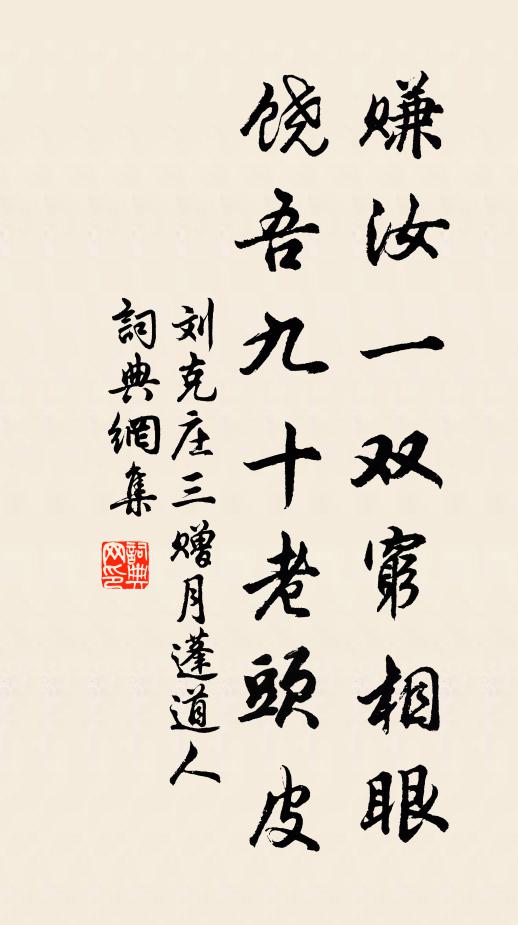 赚汝一双窮相眼
饶吾九十老頭皮
刘克庄三赠月蓬道人
詞典網集
詞典网印